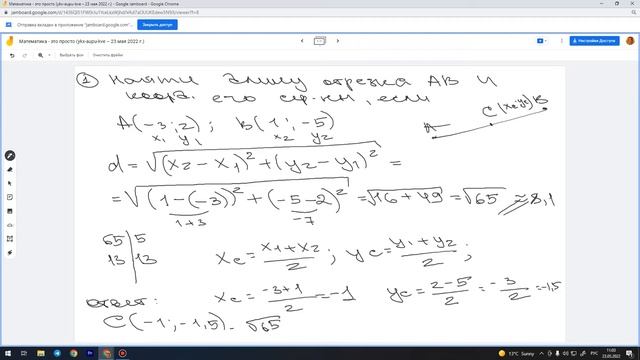 Математика - это просто (yks-aupu-kve – 23 мая 2022 г.) - Google Jamboard - Google Chrome
Отправка вкладки в приложение "jamboard.google.com"
Закрыть доступ
Математика - это просто (yks-aupu-kve – 23 мая 2022 г.)
Настройки Доступа
Выбрать фон
Очистить рамку
① Найти длину отрезка AB и
коор. его сер-ны, если
A(-3; 2); B(1; -5)
x₁ y₁ x₂ y₂
A C(xc; yc) B
d = √((x₂ - x₁)² + (y₂ - y₁)²) =
= √((1-(-3))² + (-5-2)²) = √16+49 = √65 ≈ 8,1
1+3 -7
65 | 5
13 | 13
xc = (x₁+x₂)/2 ; yc = (y₁+y₂)/2 ;
Ответ: xc = (-3+1)/2 = -1 yc = (2-5)/2 = -3/2 = -1,5
C(-1; -1,5). √65
13°C Sunny
РУС
11:03
23.05.2022